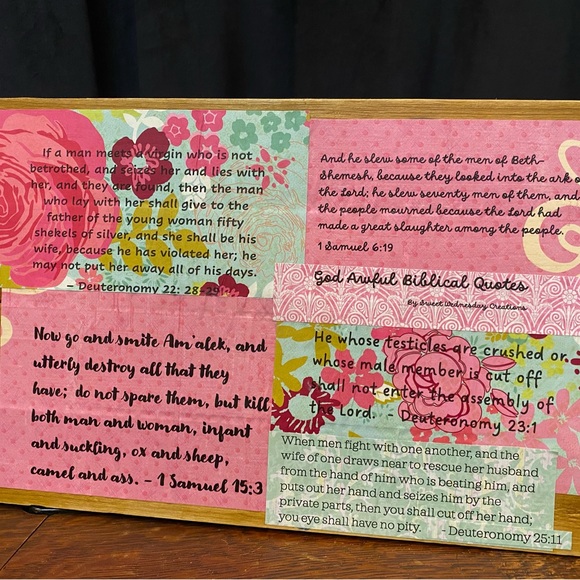 If a man meets a virgin who is not
betrothed, and seizes her and lies with
her, and they are found, then the man
who lay with her shall give to the
father of the young woman fifty
shekels of silver, and she shall be his
wife, because he has violated her; he
may not put her away all of his days.
- Deuteronomy 22: 28-29
And he slew some of the men of Beth-
Shemesh, because they looked into the ark o
the Lord; he slew seventy men of them, and
the people mourned because the Lord had
made a great slaughter among the people.
1 Samuel 6:19
God Awful Biblical Quotes
By Sweet Wednesday Creations
Now go and smite Am'alek, and
utterly destroy all that they
have; do not spare them, but kill
both man and woman, infant
and suckling, ox and sheep,
camel and ass. - 1 Samuel 15:3
He whose testicles are crushed or
whose male member is cut off
shall not enter the assembly of
the Lord. - Deuteronomy 23:1
When men fight with one another, and the
wife of one draws near to rescue her husband
from the hand of him who is beating him, and
puts out her hand and seizes him by the
private parts, then you shall cut off her hand;
you eye shall have no pity. - Deuteronomy 25:11